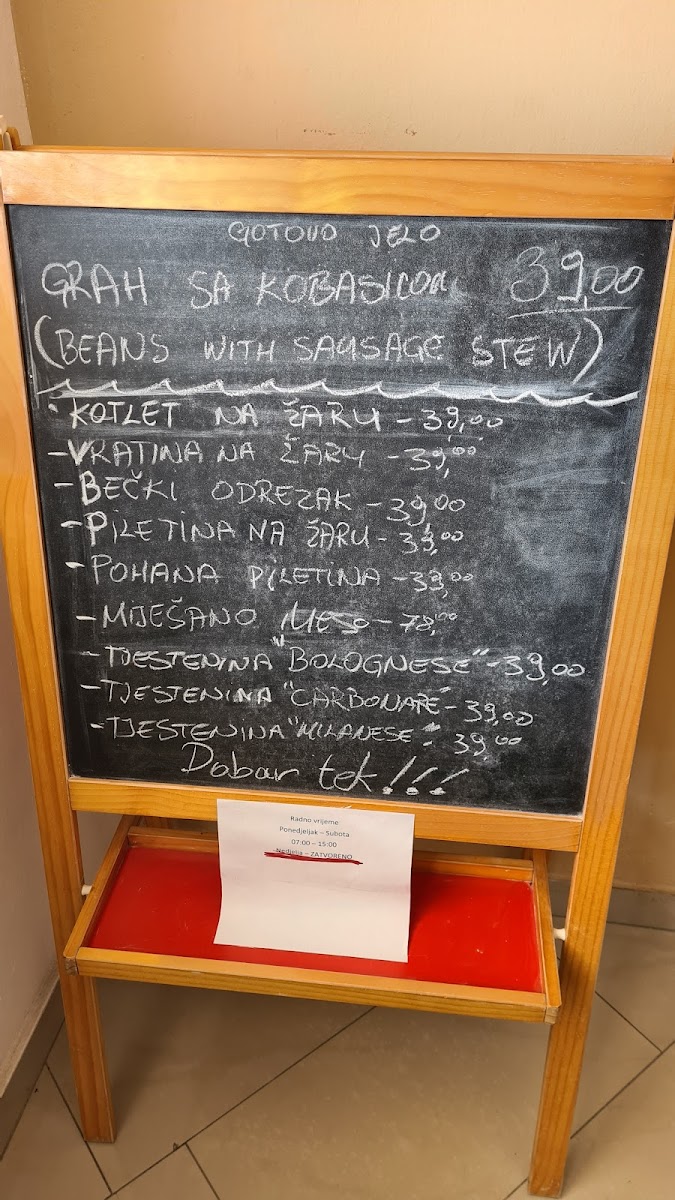 GOTOVO JELO
GRAH SA KOBASICOM 39,00
(BEANS WITH SAUSAGE STEW)
· KOTLET NA ŽARU - 39,00
- VRATINA NA ŽARU - 39,00
- BEČKI ODREZAK - 39,00
- PILETINA NA ŽARU - 39,00
- POHANA PILETINA - 39,00
- MIJEŠANO MESO - 78,00
- TJESTENINA "BOLOGNESE" - 39,00
- TJESTENINA "CARBONARE" - 39,00
- TJESTENINA "MILANESE" - 39,00
Dobar tek!!!
Radno vrijeme
Ponedjeljak – Subota
07:00 – 15:00
Nedjelja – ZATVORENO